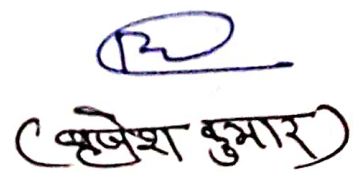 (बृजेश कुमार)